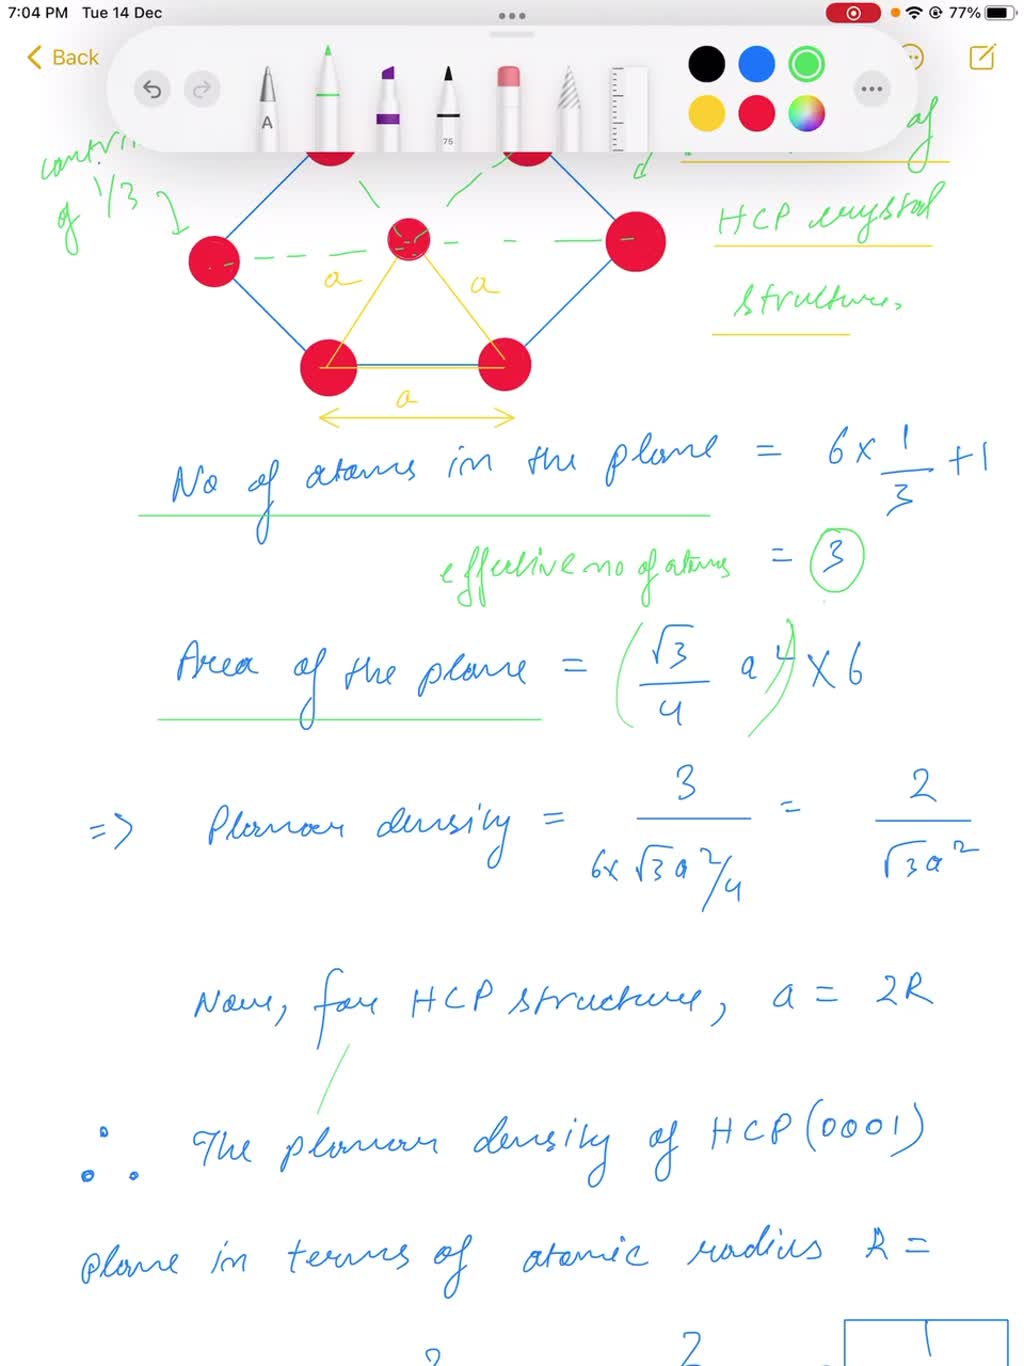 7:04 PM Tue 14 Dec 77%
Back
A
75
of
of 1/3
HCP crystal
structure.
a a
a
No of atoms in the plane = 6 x 1/3 + 1
effective no of atoms = 3
Area of the plane = (√3/4 a²) x 6
=> Planar density = 3/(6x √3a²/4) = 2/(√3a²)
Now, for HCP structure, a = 2R
∴ The planar density of HCP (0001)
plane in terms of atomic radius R =
2 2 1